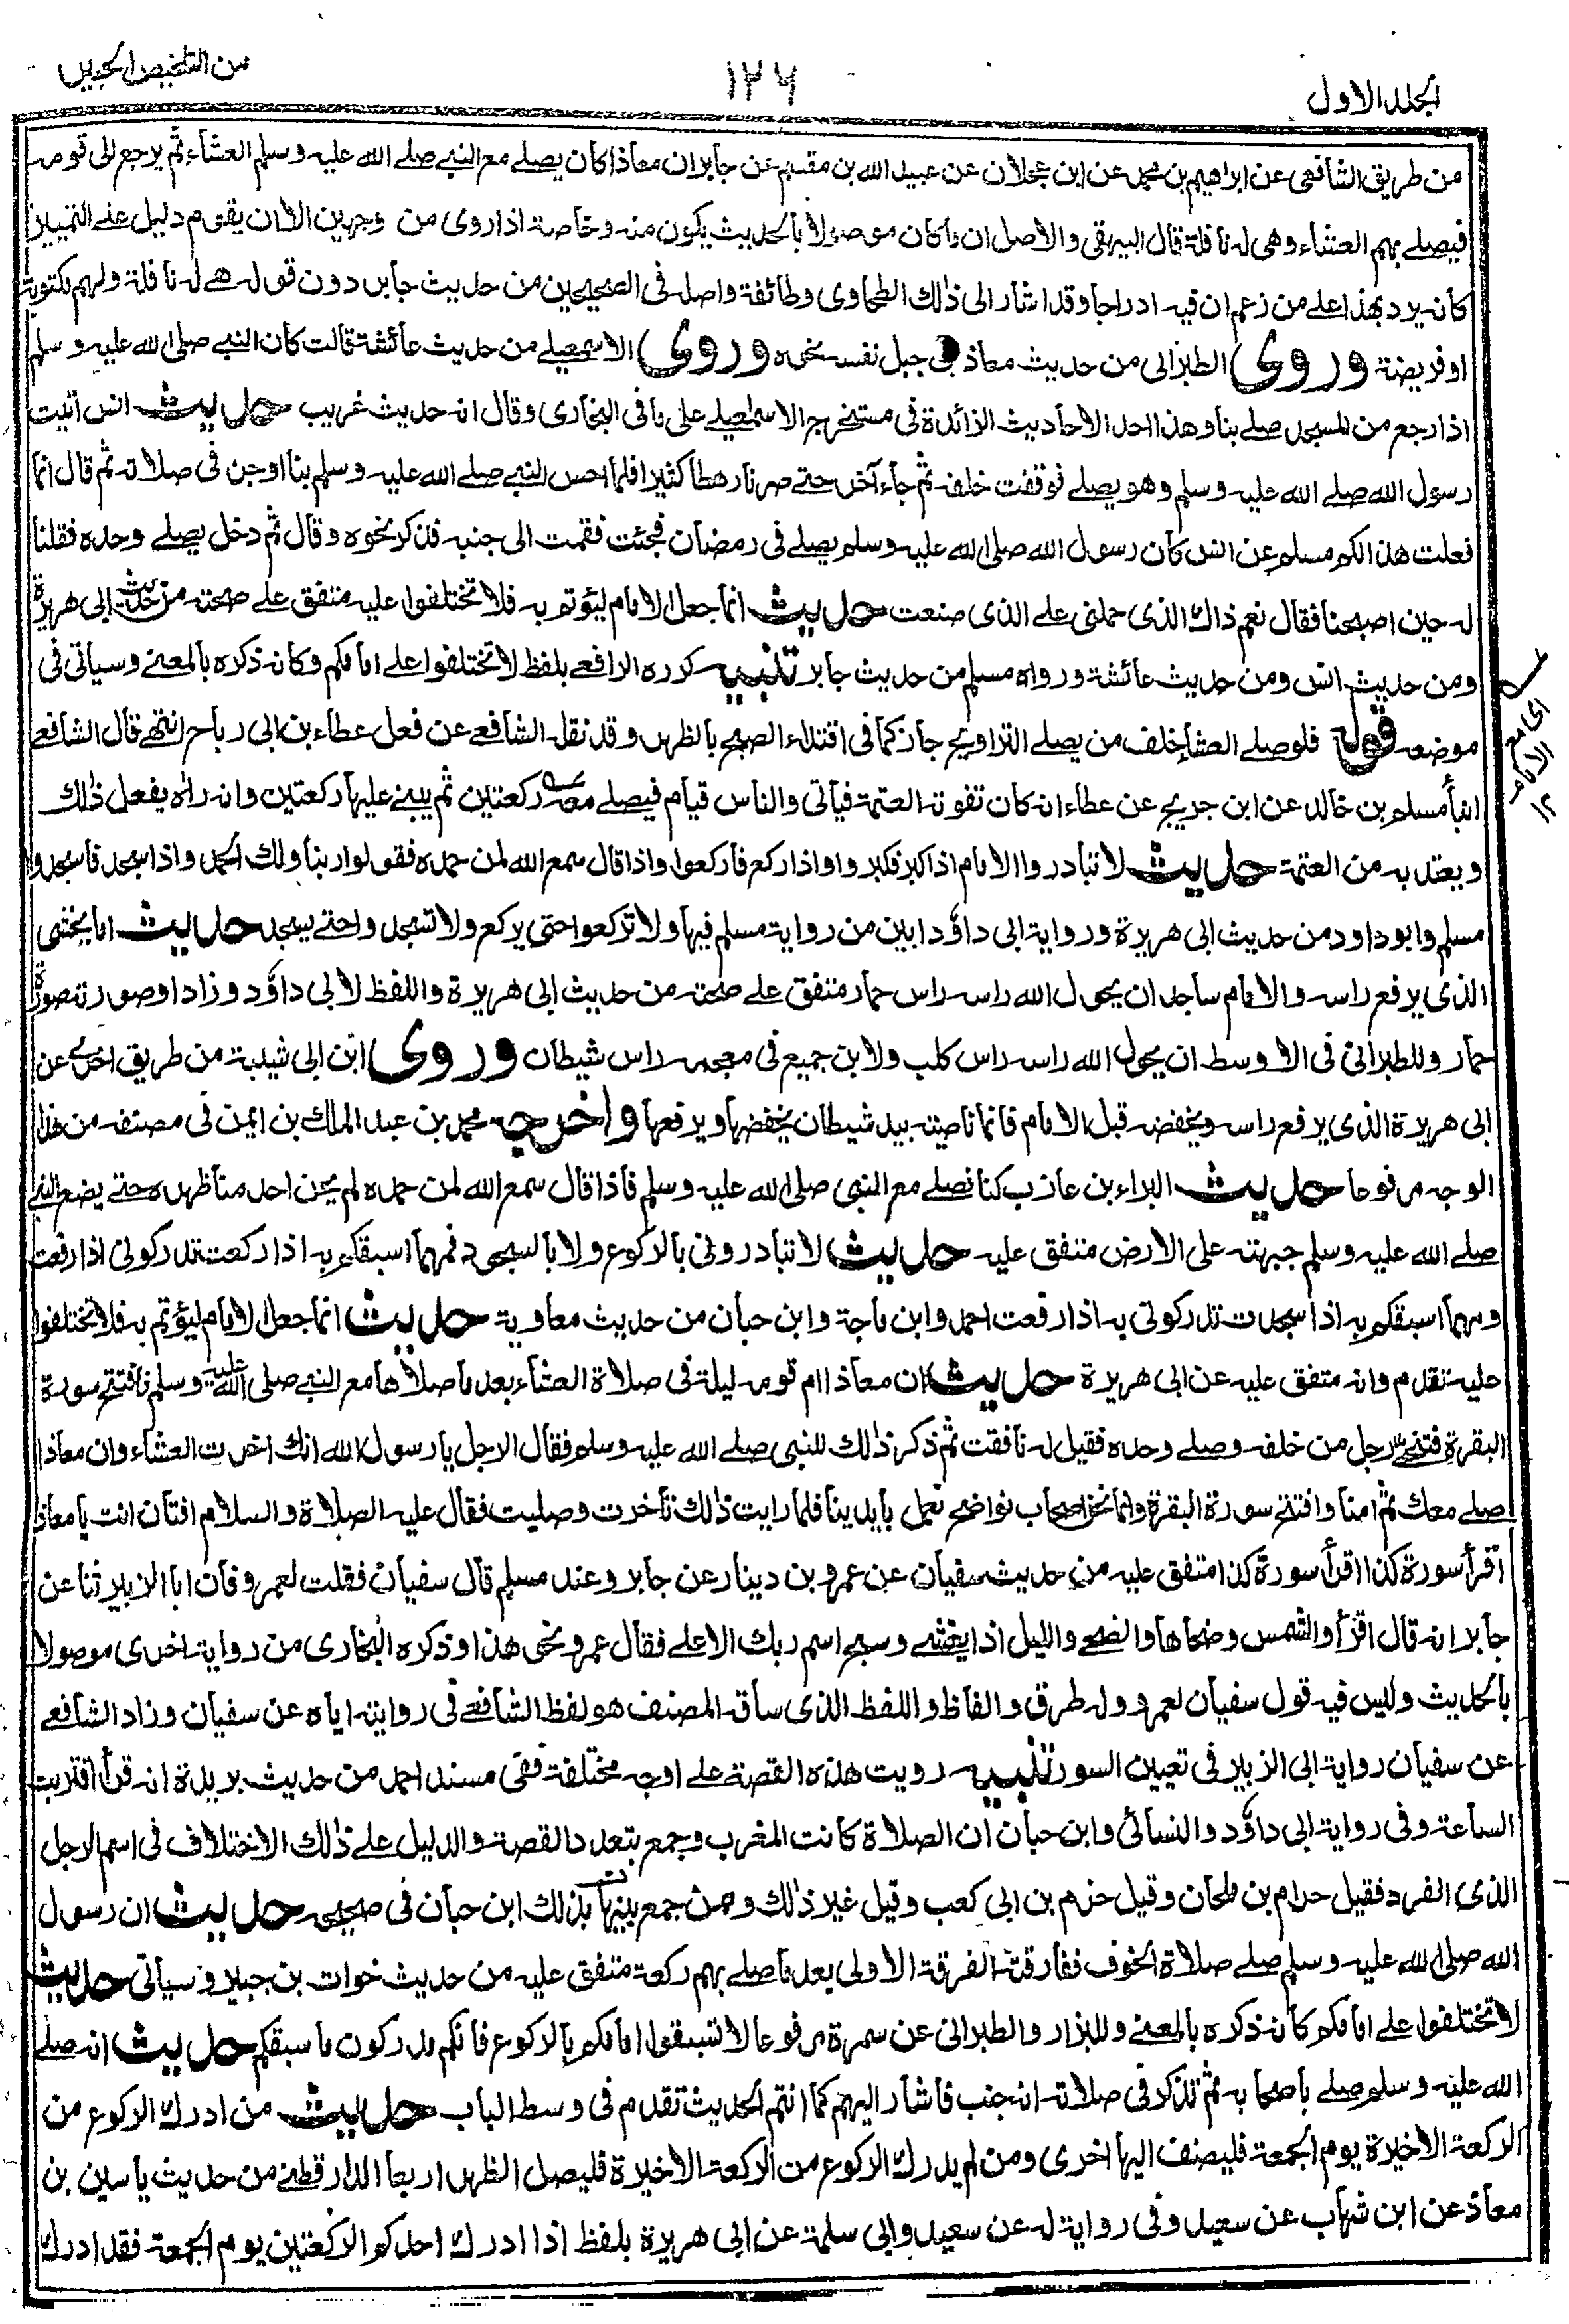 الجلد الاول
١٢٦
من التلخيص الحبير
من طريق الشافعى عن ابراهيم بن محمد عن ابن عجلان عن عبيد الله بن مقسم عن جابر ان معاذا كان يصلے مع النبے صلے الله عليه وسلم العشاء ثم يرجع الى قومه
فيصلے بهم العشاء وهى له نافلة قال البيهقى والاصل ان ما كان موصولا بالحديث يكون منه وخاصة اذا روى من وجهين الا ان يقوم دليل علے التمييز
كانه يرد بهذا على من زعم ان فيه ادراجا وقد اشار الى ذلك الطحاوى وطائفة واصله فى الصحيحين من حديث جابر دون قوله هے له نافلة ولهم مكتوبة
او فريضة وروى الطبرانى من حديث معاذ بن جبل نفسه نحوه وروى الاسمعيلے من حديث عائشة قالت كان النبے صلى الله عليه وسلم
اذا رجع من المسجد صلے بنا وهذا احد الاحاديث الزائدة فى مستخرج الاسمعيلے على ما فى البخارى وقال انه حديث غريب حديث انس اتيت
رسول الله صلے الله عليه وسلم وهو يصلے فوقفت خلفه ثم جاء آخر حتے صرنا رهطا كثيرا فلما احس النبے صلے الله عليه وسلم بنا اوجز فى صلاته ثم قال انما
فعلت هذا لكم مسلم عن انس كان رسول الله صلى الله عليه وسلم يصلے فى رمضان فجئت فقمت الى جنبه فذكر نحوه وقال ثم دخل يصلے وحده فقلنا
له حين اصبحنا فقال نعم ذاك الذى حملنى علے الذى صنعت حديث انما جعل الامام ليؤتم به فلا تختلفوا عليه متفق علے صحته من حديث ابى هريرة
ومن حديث انس ومن حديث عائشة ورواه مسلم من حديث جابر تنبيه كرره الرافعے بلفظ لا تختلفوا علے امامكم وكانه ذكره بالمعنے وسياتى فى
موضعه قوله فلو صلے العشاء خلف من يصلے التراويح جاز كما فى اقتداء الصبح بالظهر وقد نقله الشافعے عن فعل عطاء بن ابى رباح انتهے قال الشافعے
انبأ مسلم بن خالد عن ابن جريج عن عطاء انه كان تفوته العتمة فياتى والناس قيام فيصلے معهم ركعتين ثم يبنے عليها ركعتين وانه راٰه يفعل ذلك
ويعتد به من العتمة حديث لا تبادروا الامام اذا كبر فكبروا واذا ركع فاركعوا واذا قال سمع الله لمن حمده فقولوا ربنا ولك الحمد واذا سجد فاسجدوا
مسلم وابو داود من حديث ابى هريرة ورواية ابى داوٗد ابين من رواية مسلم فيها ولا تركعوا حتى يركع ولا تسجدوا حتے يسجد حديث اما يخشى
الذى يرفع راسه والامام ساجد ان يحول الله راسه راس حمار متفق علے صحته من حديث ابى هريرة واللفظ لابى داوٗد وزاد او صورته صورة
حمار وللطبرانى فى الاوسط ان يحول الله راسه راس كلب ولابن جميع فى معجمه راس شيطان وروى ابن ابى شيبة من طريق اخرى عن
ابى هريرة الذى يرفع راسه ويخفضه قبل الامام فانما ناصيته بيد شيطان يخفضها ويرفعها واخرجه محمد بن عبد الملك بن ايمن فى مصنفه من هذا
الوجه مرفوعا حديث البراء بن عازب كنا نصلے مع النبى صلى الله عليه وسلم فاذا قال سمع الله لمن حمده لم يحن احد منا ظهره حتے يضع النبے
صلے الله عليه وسلم جبهته على الارض متفق عليه حديث لا تبادرونى بالركوع ولا بالسجود فمهما اسبقكم به اذا ركعت تدركونى اذا رفعت
ومهما اسبقكم به اذا سجدت تدركونى به اذا رفعت احمد وابن ماجة وابن حبان من حديث معاوية حديث انما جعل الامام ليؤتم به فلا تختلفوا
عليه تقدم وانه متفق عليه عن ابى هريرة حديث ان معاذا ام قومه ليلة فى صلاة العشاء بعد ما صلاها مع النبے صلى الله عليه وسلم فافتتح سورة
البقرة فتنحى رجل من خلفه وصلے وحده فقيل له نافقت ثم ذكر ذلك للنبى صلے الله عليه وسلم فقال الرجل يا رسول الله انك اخرت العشاء وان معاذا
صلے معك ثم امنا وافتتح سورة البقرة وانما نحن اصحاب نواضح نعمل بايدينا فلما رايت ذلك تأخرت وصليت فقال عليه الصلاة والسلام افتان انت يا معاذ
اقرأ سورة كذا اقرأ سورة كذا متفق عليه من حديث سفيان عن عمرو بن دينار عن جابر وعند مسلم قال سفيان فقلت لعمرو فان ابا الزبير ثنا عن
جابر انه قال اقرأ والشمس وضحاها والضحے والليل اذا يغشے وسبح اسم ربك الاعلے فقال عمرو نحو هذا وذكره البخارى من رواية اخرى موصولا
بالحديث وليس فيه قول سفيان لعمرو وله طرق والفاظ واللفظ الذى ساقه المصنف هو لفظ الشافعے فى روايته اياه عن سفيان وزاد الشافعے
عن سفيان رواية ابى الزبير فى تعيين السور تنبيه رويت هذه القصة علے اوجه مختلفة ففى مسند احمد من حديث بريدة انه قرأ اقتربت
الساعة وفى رواية ابى داوٗد والنسائى وابن حبان ان الصلاة كانت المغرب وجمع بتعدد القصة والدليل علے ذلك الاختلاف فى اسم الرجل
الذى انفرد فقيل حرام بن ملحان وقيل حزم بن ابى كعب وقيل غير ذلك وممن جمع بينهما بذلك ابن حبان فى صحيحه حديث ان رسول
الله صلى الله عليه وسلم صلے صلاة الخوف ففارقته الفرقة الاولى بعد ما صلے بهم ركعة متفق عليه من حديث خوات بن جبير وسياتى حديث
لا تختلفوا علے امامكم كانه ذكره بالمعنے وللبزار والطبرانى عن سمرة مرفوعا لا تسبقوا امامكم بالركوع فانكم تدركون ما سبقكم حديث انه صلے
الله عليه وسلم صلے باصحابه ثم تذكر فى صلاته انه جنب فاشار اليهم كما انتم الحديث تقدم فى وسط الباب حديث من ادرك الركوع من
الركعة الاخيرة يوم الجمعة فليضف اليها اخرى ومن لم يدرك الركوع من الركعة الاخيرة فليصل الظهر اربعا الدارقطنے من حديث ياسين بن
معاذ عن ابن شهاب عن سعيد وفى رواية له عن سعيد وابى سلمة عن ابى هريرة بلفظ اذا ادرك احدكم الركعتين يوم الجمعة فقد ادرك
اى مع
الامام
١٢